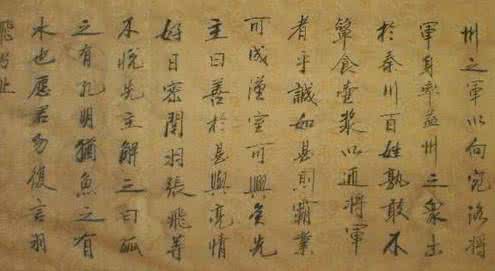 州之軍以向宛洛將
軍身率益州之眾出
於秦川百姓孰敢不
簞食壺漿以迎將軍
者乎誠如是則霸業
可成漢室可興矣先
主曰善於是與亮情
好日密關羽張飛等
不悅先主解之曰孤
之有孔明猶魚之有
水也願君勿復言羽
飛乃止